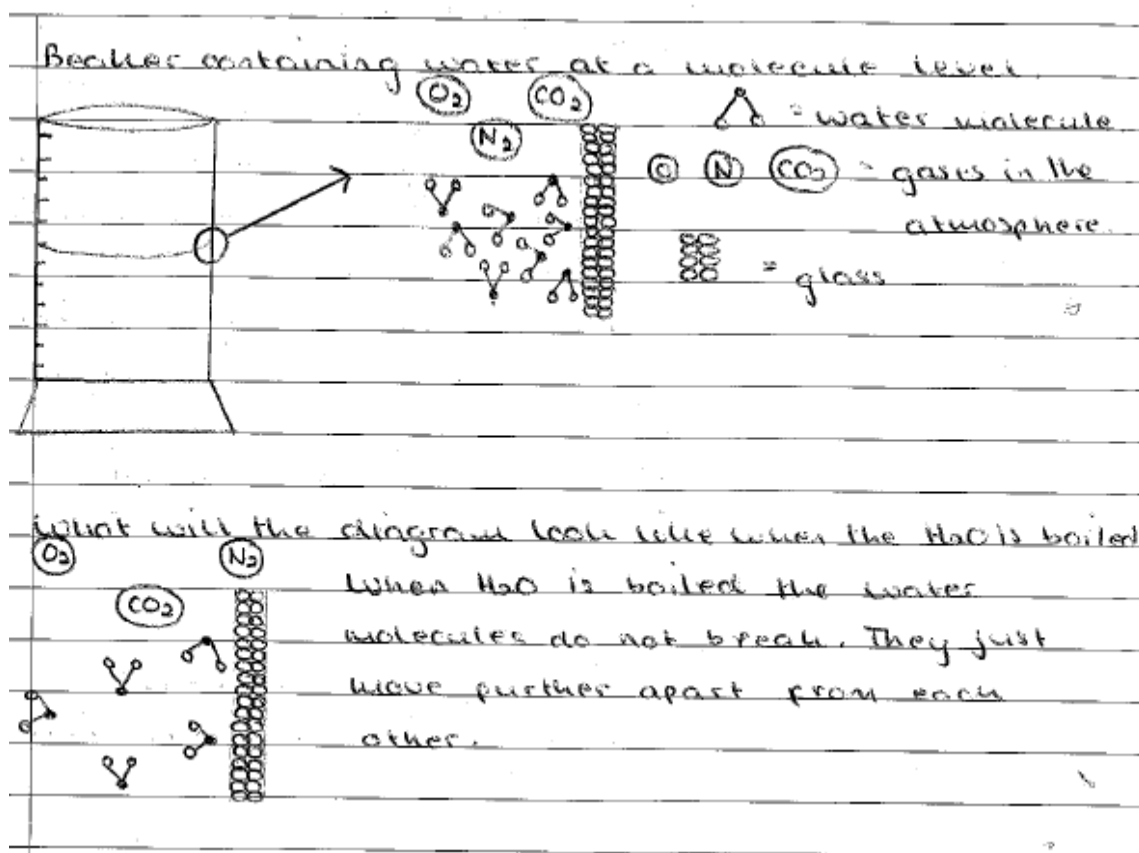 Beaker containing water at a molecule level.
O₂ CO₂
N₂
= water molecule
O N CO₂ = gases in the
atmosphere.
= glass
What will the diagram look like when the H₂O is boiled
O₂ N₂
CO₂
When H₂O is boiled the water
molecules do not break. They just
move further apart from each
other.